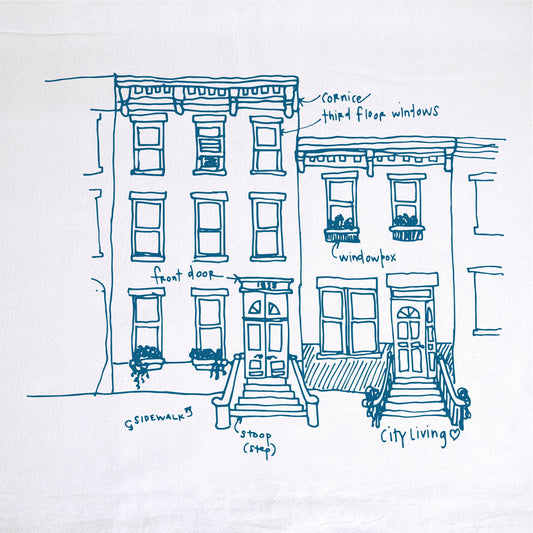 cornice
third floor windows
windowbox
front door
1818
SIDEWALK
stoop
(step)
City Living ♡